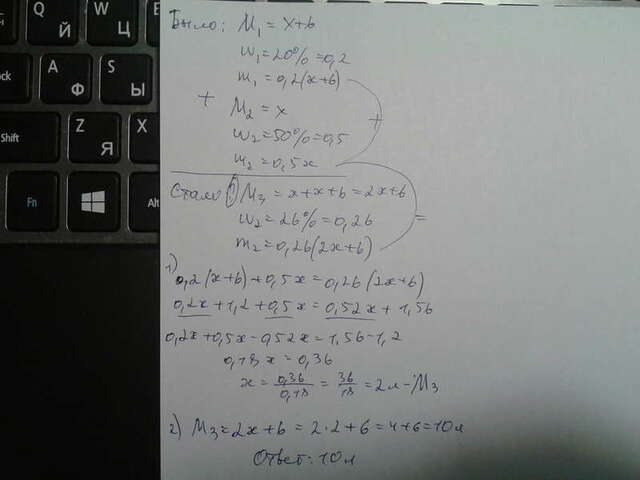 Q
Й
W
Ц
E
ock
A
Ф
S
Ы
Shift
Z
Я
X
Fn
Alt
Было: M₁ = x+6
w₁=20%=0,2
m₁ = 0,2(x+6)
+ M₂ = x +
w₂=50%=0,5
m₂ = 0,5x
Стало: 1) M₃ = x+x+6=2x+6
w₂=26%=0,26 =
m₂=0,26(2x+6)
1)
0,2(x+6)+0,5x=0,26(2x+6)
0,2x+1,2+0,5x=0,52x+1,56
0,2x+0,5x-0,52x=1,56-1,2
0,18x=0,36
x = 0,36/0,18 = 36/18 = 2л - M₃
2) M₃=2x+6=2·2+6=4+6=10л
Ответ: 10л